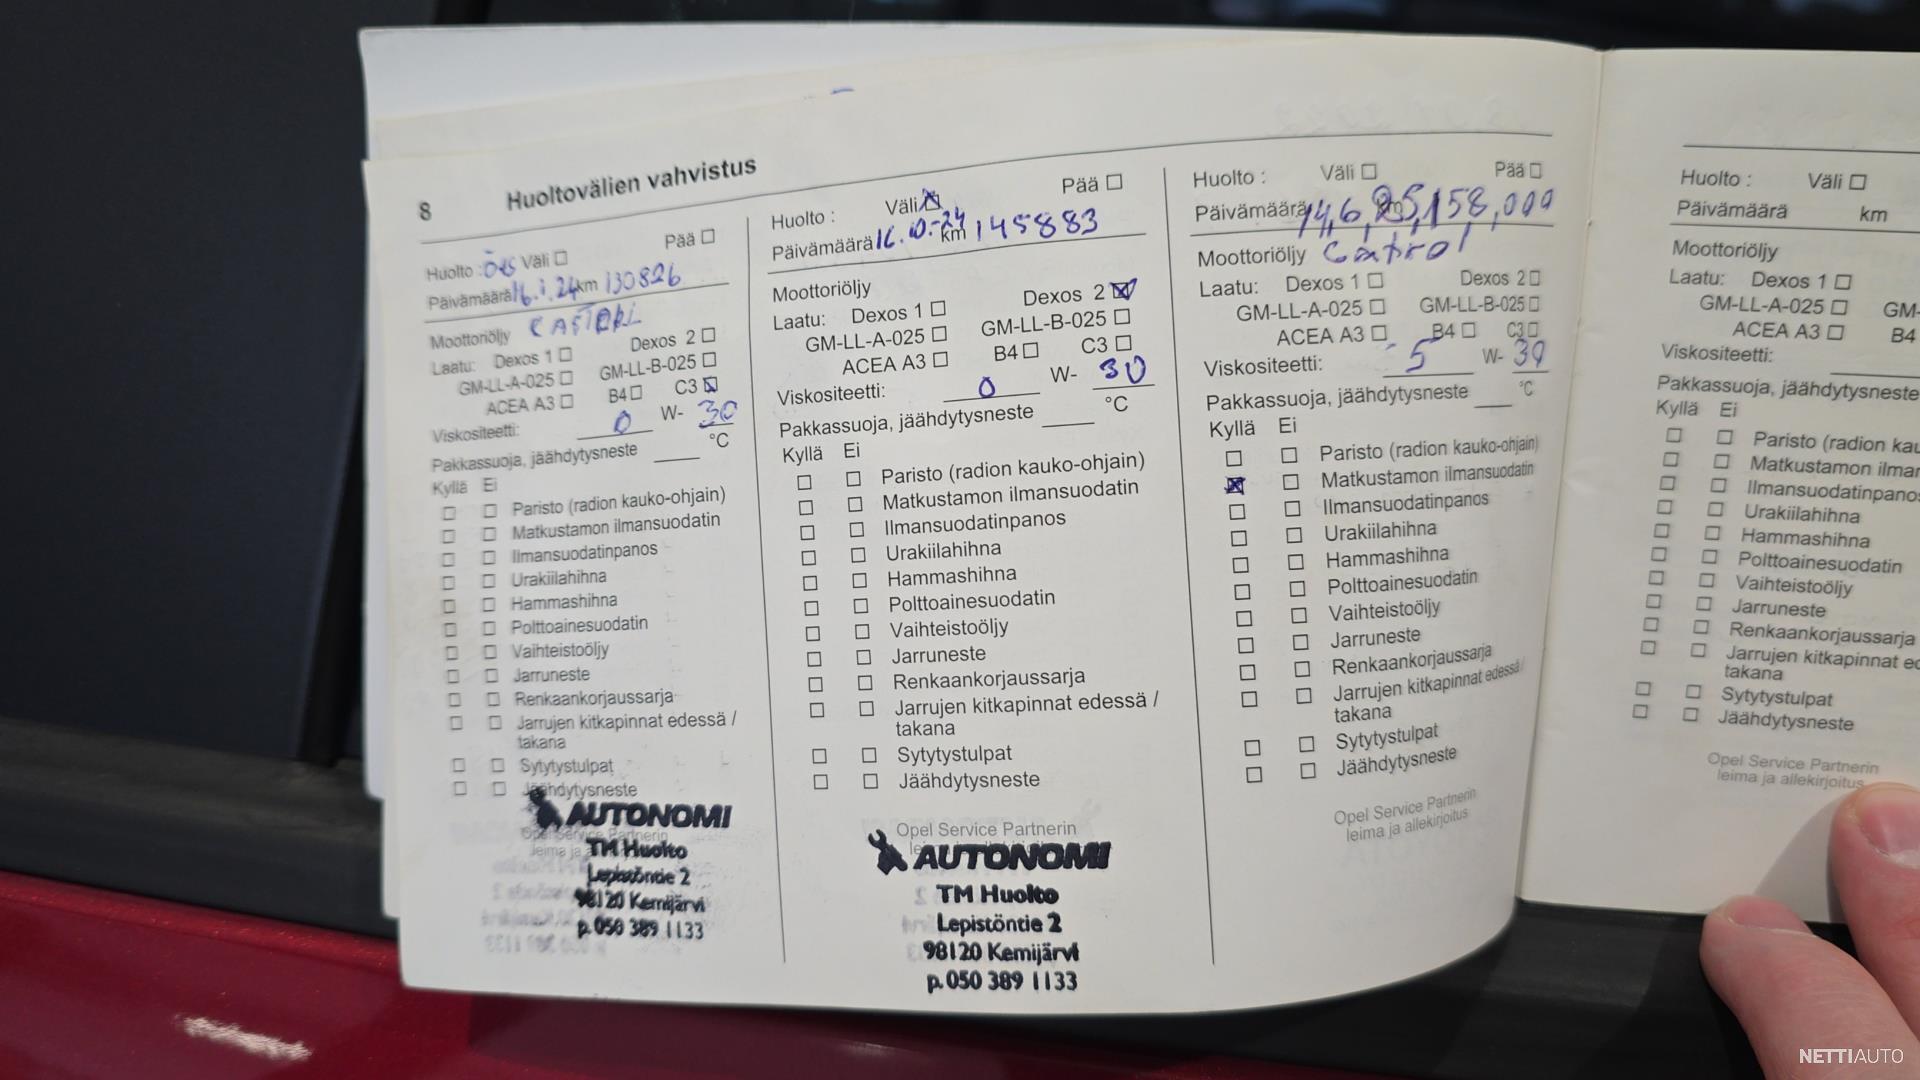 8 Huoltovälien vahvistus
Huolto : Väli ☐ Pää ☐
Päivämäärä 16.1.24 km 130826
Moottoriöljy CASTROL
Laatu: Dexos 1 ☐ Dexos 2 ☐
GM-LL-A-025 ☐ GM-LL-B-025 ☐
ACEA A3 ☐ B4 ☐ C3 ☒
Viskositeetti: 0 W- 30
Pakkassuoja, jäähdytysneste ____ °C
Kyllä Ei
☐ ☐ Paristo (radion kauko-ohjain)
☐ ☐ Matkustamon ilmansuodatin
☐ ☐ Ilmansuodatinpanos
☐ ☐ Urakiilahihna
☐ ☐ Hammashihna
☐ ☐ Polttoainesuodatin
☐ ☐ Vaihteistoöljy
☐ ☐ Jarruneste
☐ ☐ Renkaankorjaussarja
☐ ☐ Jarrujen kitkapinnat edessä /
takana
☐ ☐ Sytytystulpat
☐ ☐ Jäähdytysneste
AUTONOMI
Opel Service Partnerin
leima ja
TM Huolto
Lepistöntie 2
98120 Kemijärvi
p. 050 389 1133
Huolto : Väli ☒ Pää ☐
Päivämäärä 16.10.-24 km 145883
Moottoriöljy
Laatu: Dexos 1 ☐ Dexos 2 ☒
GM-LL-A-025 ☐ GM-LL-B-025 ☐
ACEA A3 ☐ B4 ☐ C3 ☐
Viskositeetti: 0 W- 30
Pakkassuoja, jäähdytysneste ____ °C
Kyllä Ei
☐ ☐ Paristo (radion kauko-ohjain)
☐ ☐ Matkustamon ilmansuodatin
☐ ☐ Ilmansuodatinpanos
☐ ☐ Urakiilahihna
☐ ☐ Hammashihna
☐ ☐ Polttoainesuodatin
☐ ☐ Vaihteistoöljy
☐ ☐ Jarruneste
☐ ☐ Renkaankorjaussarja
☐ ☐ Jarrujen kitkapinnat edessä /
takana
☐ ☐ Sytytystulpat
☐ ☐ Jäähdytysneste
Opel Service Partnerin
AUTONOMI
TM Huolto
Lepistöntie 2
98120 Kemijärvi
p. 050 389 1133
Huolto : Väli ☐ Pää ☐
Päivämäärä 14,6,25, km 158,000
Moottoriöljy Castrol
Laatu: Dexos 1 ☐ Dexos 2 ☐
GM-LL-A-025 ☐ GM-LL-B-025 ☐
ACEA A3 ☐ B4 ☐ C3 ☐
Viskositeetti: 5 W- 30
Pakkassuoja, jäähdytysneste ____ °C
Kyllä Ei
☐ ☐ Paristo (radion kauko-ohjain)
☒ ☐ Matkustamon ilmansuodatin
☐ ☐ Ilmansuodatinpanos
☐ ☐ Urakiilahihna
☐ ☐ Hammashihna
☐ ☐ Polttoainesuodatin
☐ ☐ Vaihteistoöljy
☐ ☐ Jarruneste
☐ ☐ Renkaankorjaussarja
☐ ☐ Jarrujen kitkapinnat edessä /
takana
☐ ☐ Sytytystulpat
☐ ☐ Jäähdytysneste
Opel Service Partnerin
leima ja allekirjoitus
Huolto : Väli ☐
Päivämäärä km
Moottoriöljy
Laatu: Dexos 1 ☐
GM-LL-A-025 ☐ GM-
ACEA A3 ☐ B4
Viskositeetti:
Pakkassuoja, jäähdytysneste
Kyllä Ei
☐ ☐ Paristo (radion kau
☐ ☐ Matkustamon ilmar
☐ ☐ Ilmansuodatinpanos
☐ ☐ Urakiilahihna
☐ ☐ Hammashihna
☐ ☐ Polttoainesuodatin
☐ ☐ Vaihteistoöljy
☐ ☐ Jarruneste
☐ ☐ Renkaankorjaussarja
☐ ☐ Jarrujen kitkapinnat ed
takana
☐ ☐ Sytytystulpat
☐ ☐ Jäähdytysneste
Opel Service Partnerin
leima ja allekirjoitus
NETTIAUTO